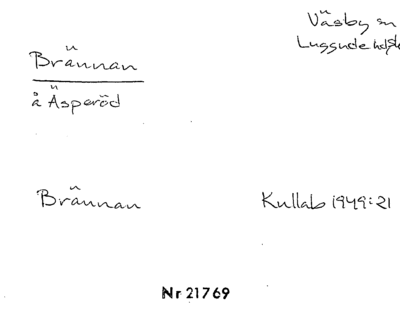 Väsby sn
Luggude hd
Brännan
å Äsperöd
Brännan
Kullab 1949:21
Nr 21769